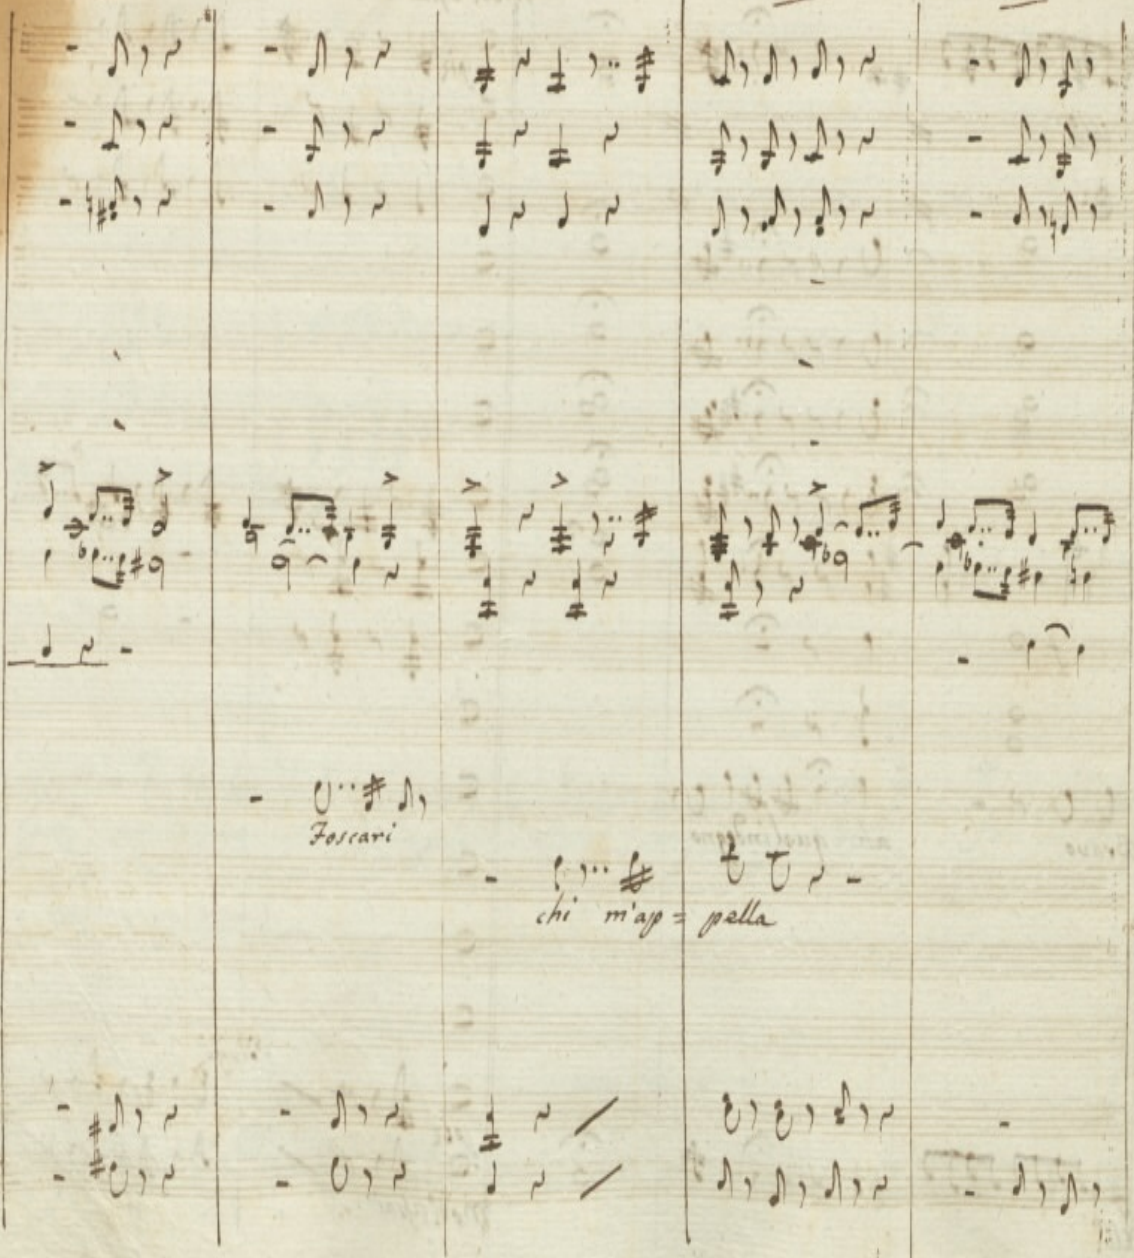 Foscari
chi m'ap = pella